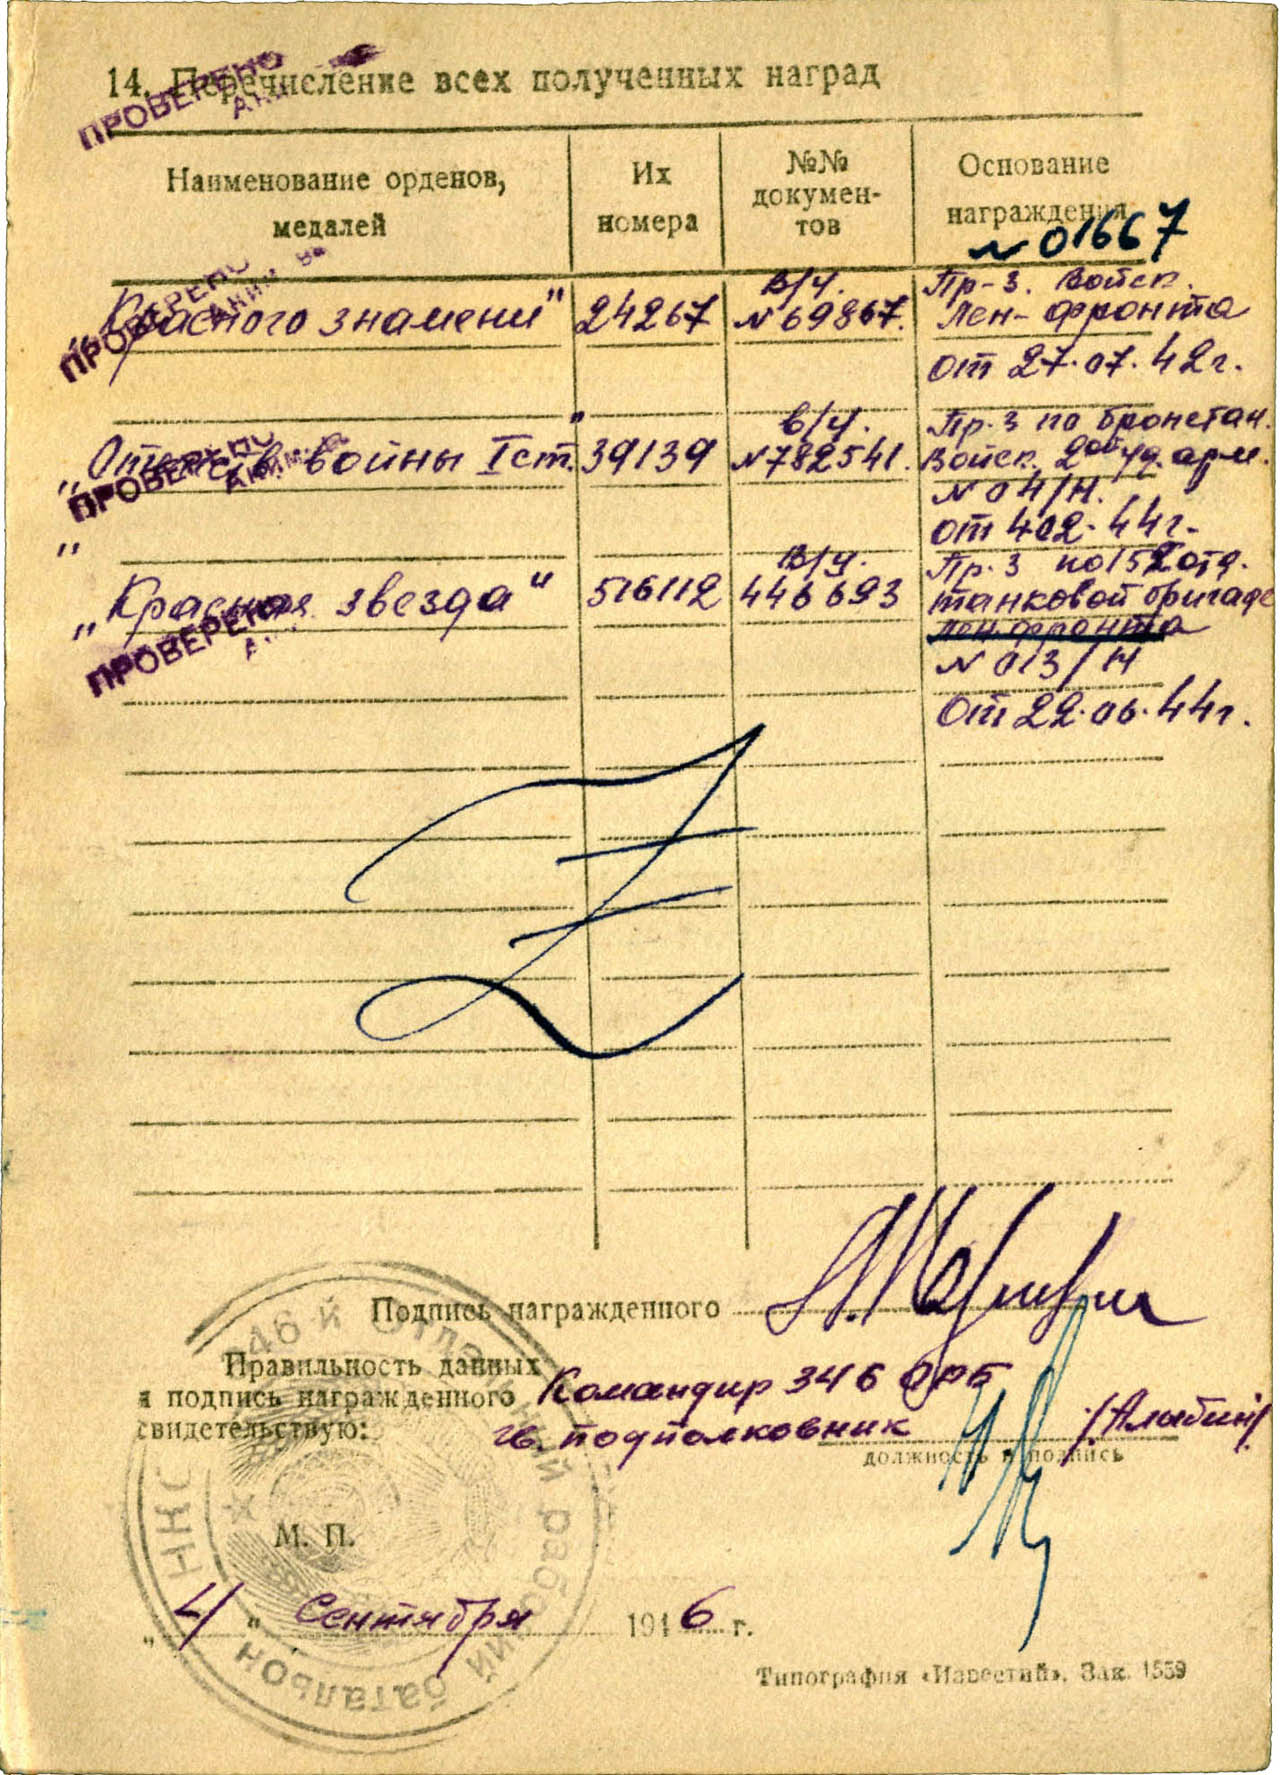 14. Перечисление всех полученных наград
ПРОВЕРЕНО
Наименование орденов,
медалей
Их
номера
№№
докумен-
тов
Основание
награждения
N 01667
ПРОВЕРЕНО
„Красного знамени"
24267
в/ч.
N 69867.
Пр-з. Войск.
Лен- фронта
от 27.07.42г.
ПРОВЕРЕНО
„Отечеств. войны I ст."
39139
в/ч.
N 782541.
Пр.з по бронетан.
Войск. 2ой уд. арм.
N 04/Н.
от 4.02.44г.
„Красная звезда"
ПРОВЕРЕНО
516112
в/ч.
446693
Пр.з по 152 отд.
танковой бригаде
Лен. фронта
N 013/Н
от 22.06.44г.
Подпись награжденного
Правильность данных
и подпись награжденного
свидетельствую:
Командир 346 ОРБ
гв. подполковник
/Алыбин/
должность и подпись
М. П.
346-й Отдельный рабочий батальон НКС
„4" Сентября 1946 г.
Типография «Известий». Зак. 1559